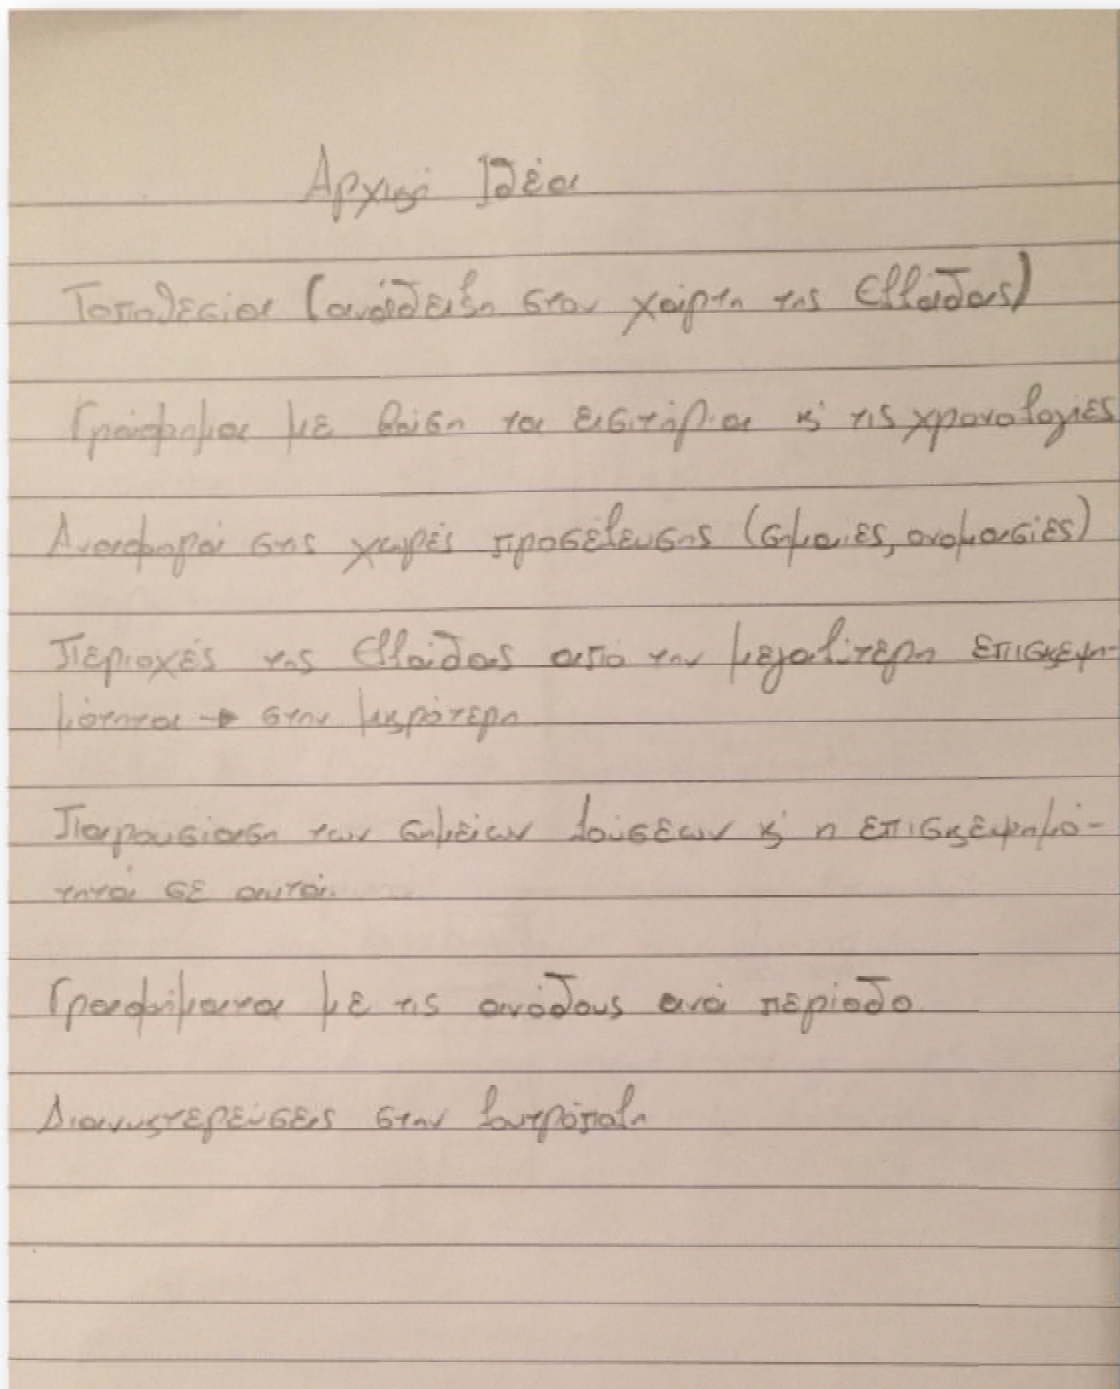 Αρχική Ιδέα
Τοποθεσία (ανάδειξη στον χάρτη της Ελλάδας)
Γράφημα με βάση τα εισιτήρια κ' τις χρονολογίες
Αναφορά στις χώρες προσέλευσης (σημαίες, ονομασίες)
Περιοχές της Ελλάδας από την μεγαλύτερη επισκεψη-
μότητα → στην μικρότερη
Παρουσίαση των σημείων λούσεων κ' η επισκεψημό-
τητά σε αυτά.
Γραφήματα με τις ανόδους ανά περίοδο
Διανυκτερεύσεις στην λουτρόπολη